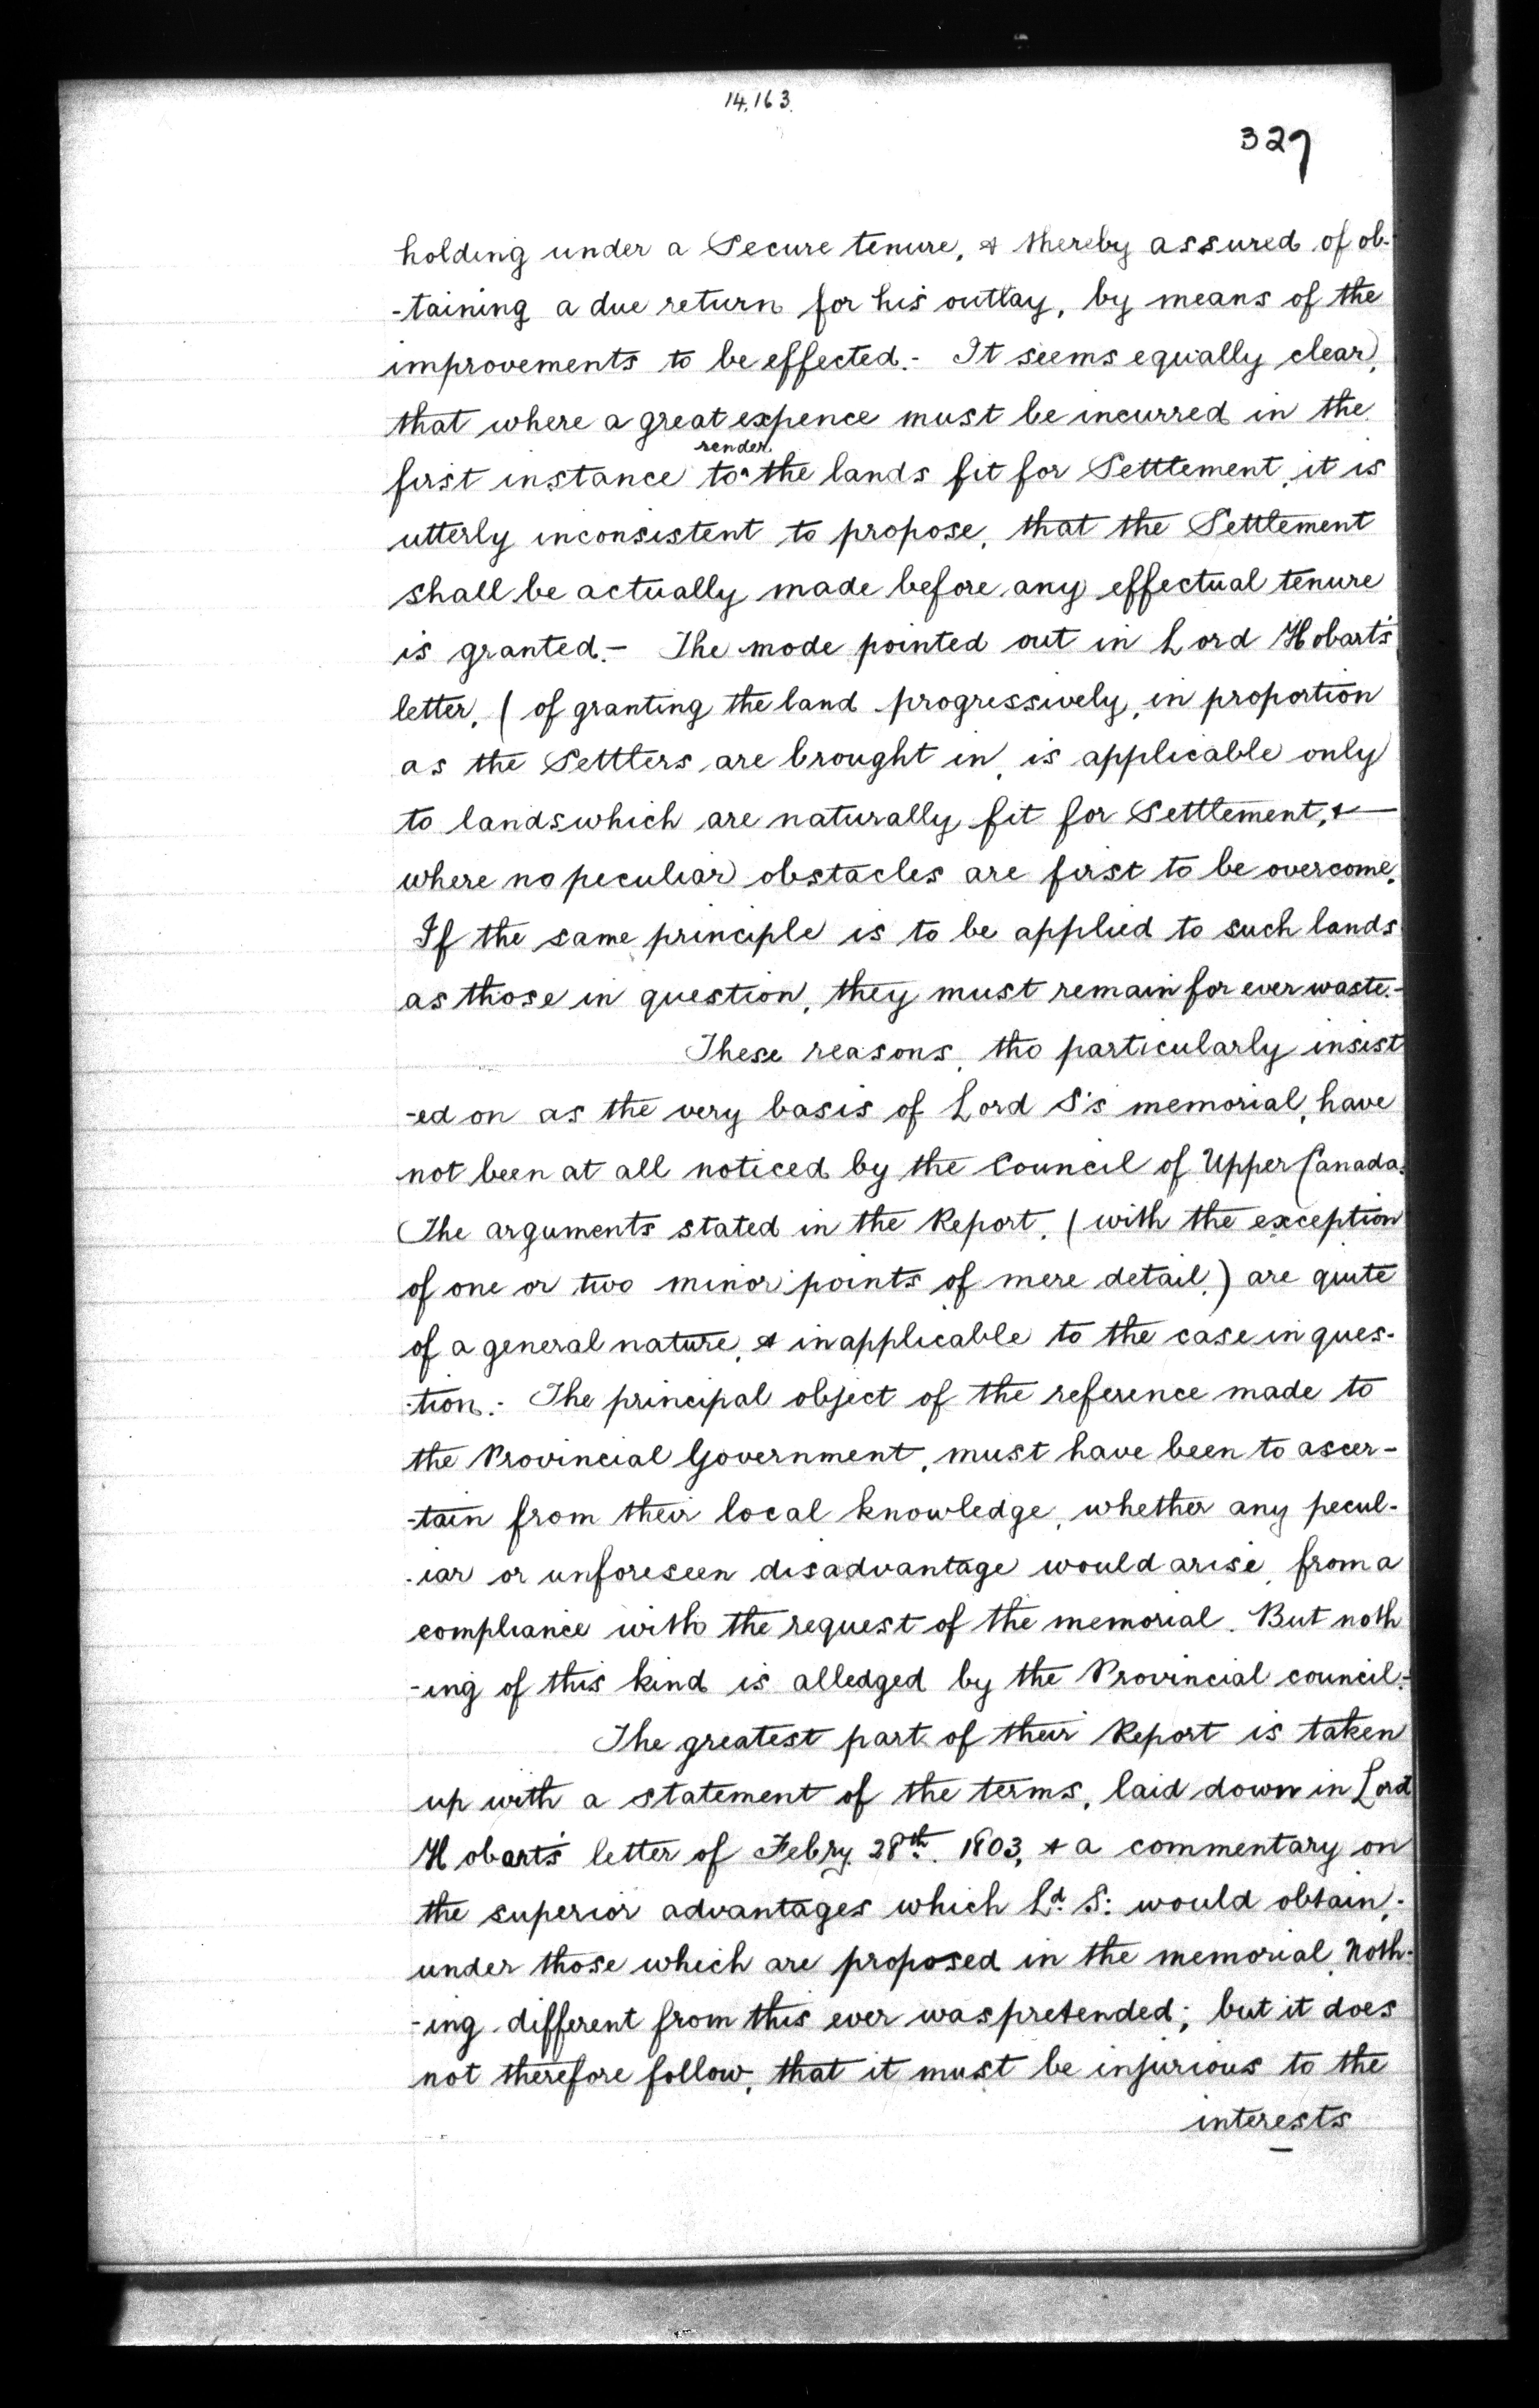 14,163.
327
holding under a Secure tenure, & thereby assured of ob-
-taining a due return for his outlay, by means of the
improvements to be effected.- It seems equally clear,
that where a great expence must be incurred in the
render
first instance to ^ the lands fit for Settlement, it is
utterly inconsistent to propose, that the Settlement
shall be actually made before any effectual tenure
is granted.- The mode pointed out in Lord Hobart's
letter, ( of granting the land progressively, in proportion
as the Settlers are brought in, is applicable only
to lands which are naturally fit for Settlement, & —
where no peculiar obstacles are first to be overcome.
If the same principle is to be applied to such lands
as those in question, they must remain for ever waste.-
These reasons, tho particularly insist
-ed on as the very basis of Lord S's memorial, have
not been at all noticed by the Council of Upper Canada.
The arguments stated in the Report, (with the exception
of one or two minor points of mere detail,) are quite
of a general nature, & inapplicable to the case in ques-
-tion.- The principal object of the reference made to
the Provincial Government, must have been to ascer-
-tain from their local knowledge, whether any pecul-
-iar or unforeseen disadvantage would arise, from a
compliance with the request of the memorial. But noth
-ing of this kind is alledged by the Provincial council.-
The greatest part of their Report is taken
up with a statement of the terms, laid down in Lord
Hobart's letter of Febry. 28th. 1803, & a commentary on
the superior advantages which Ld. S: would obtain,
under those which are proposed in the memorial. Noth-
-ing different from this ever was pretended; but it does
not therefore follow, that it must be injurious to the
interests